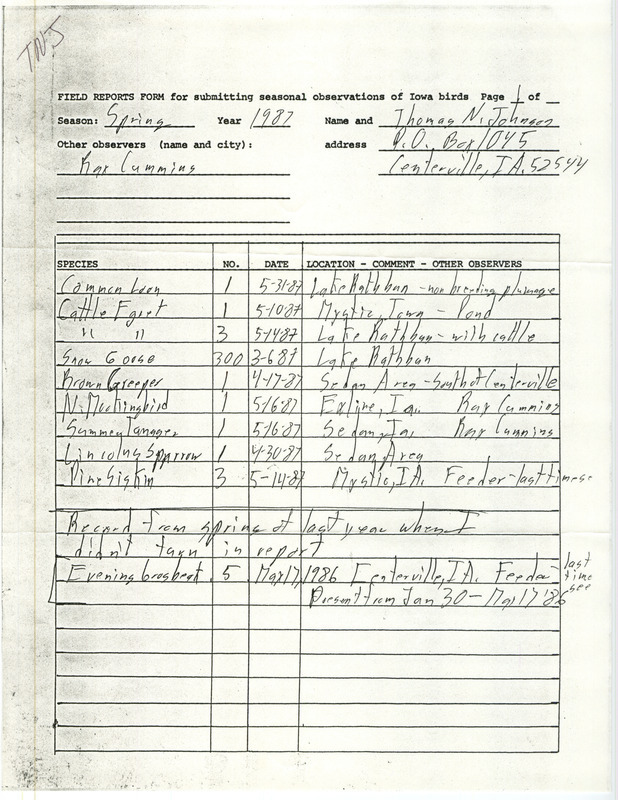 TNJ
FIELD REPORTS FORM for submitting seasonal observations of Iowa birds Page 1 of _
Season: Spring Year 1987 Name and Thomas N. Johnson
Other observers (name and city): address P.O. Box 1045
Ray Cummins Centerville, IA. 52544
SPECIES NO. DATE LOCATION - COMMENT - OTHER OBSERVERS
Common Loon 1 5-31-87 Lake Rathbun - non breeding plumage
Cattle Egret 1 5-10-87 Mystic, Iowa - Pond
" " 3 5-14-87 Lake Rathbun - with cattle
Snow Goose 300 3-6-87 Lake Rathbun
Brown Creeper 1 4-17-87 Sedan Area - South of Centerville
N. Mockingbird 1 5-16-87 Exline, Ia. Ray Cummins
Summer Tanager 1 5-16-87 Sedan, Ia. Ray Cummins
Lincolns Sparrow 1 4-30-87 Sedan Area
Pine Siskin 3 5-14-87 Mystic, IA. Feeder - last time se
Record from spring of last year when I
didn't turn in report
Evening Grosbeak 5 Mar 17, 1986 Centerville, IA. Feeder - last time see
Present from Jan 30 - Mar 17 '86